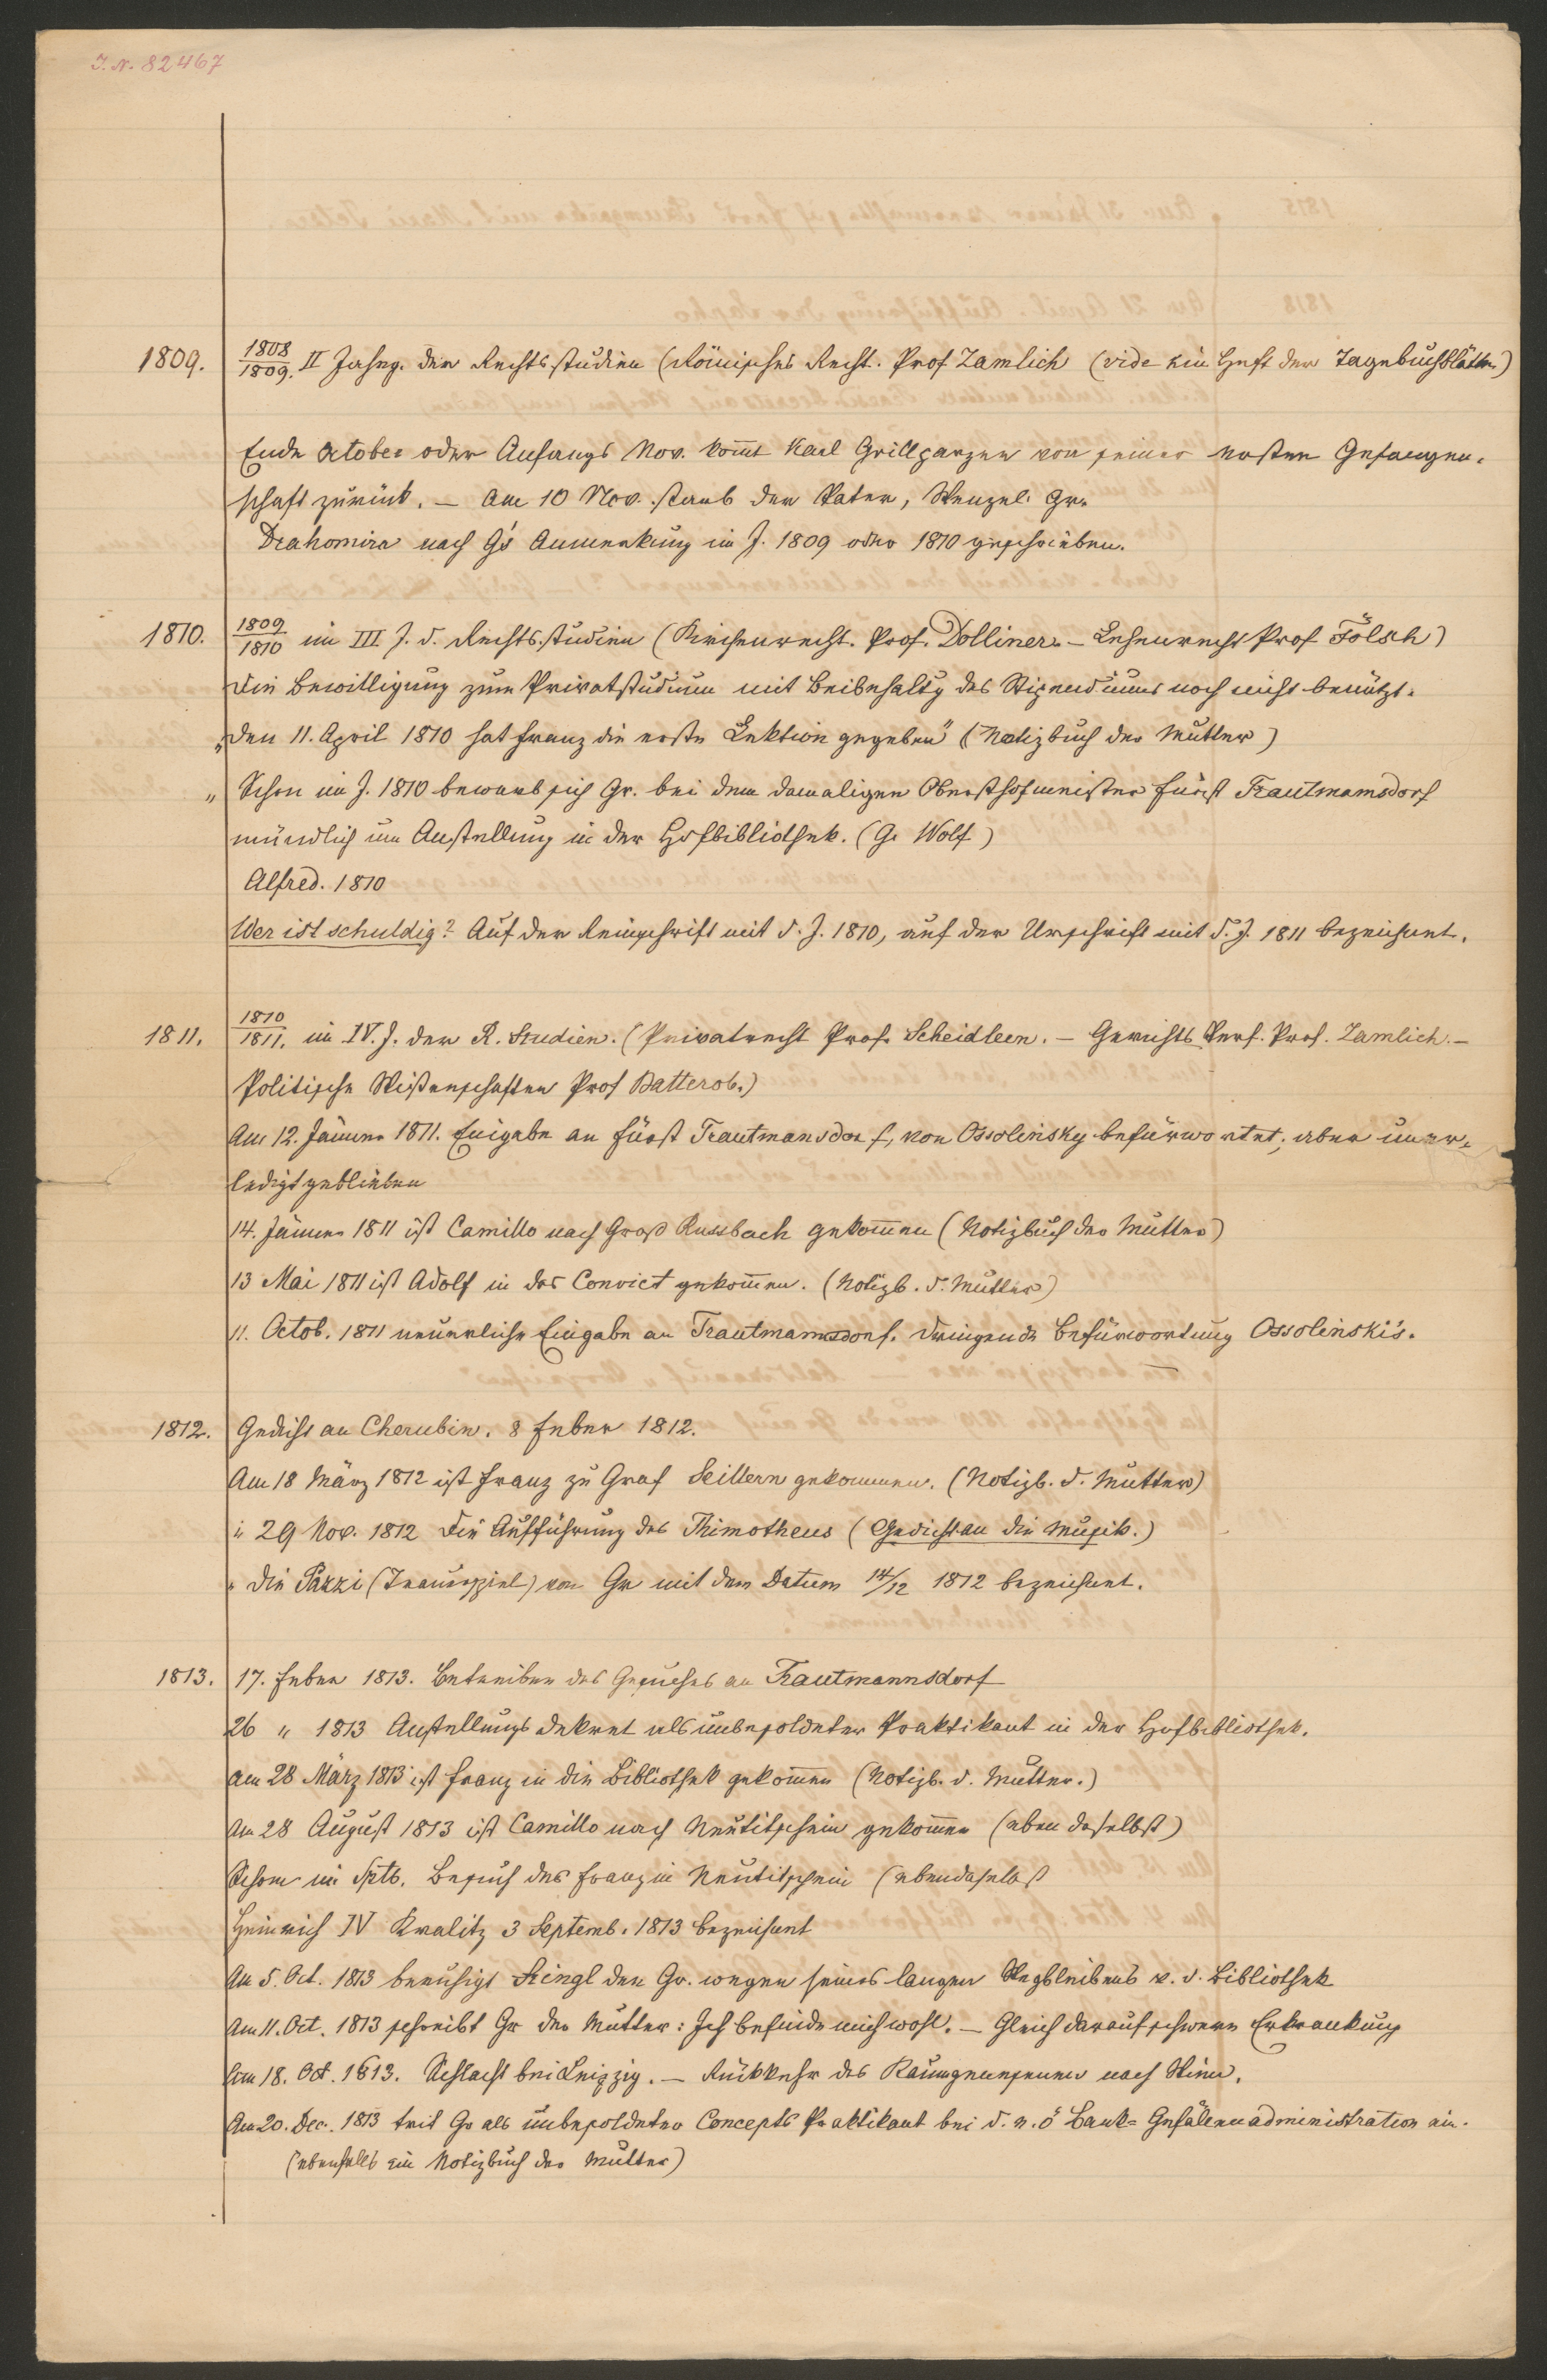 I. N. 82467
1809. 1808/1809. II Jahrg. der Rechtsstudien (Römisches Recht. Prof Zamlich (vide ein Heft der Tagebuchblätter)
Ende October oder Anfangs Nov. kom̄t Karl Grillparzer von seiner ersten Gefangen-
schaft zurück. — Am 10 Nov. starb der Vater, Wenzel Gr.
Drahomira nach G's Anmerkung im J. 1809 oder 1810 geschrieben.
1810. 1809/1810 im III J. d. Rechtsstudien (Kirchenrecht. Prof. Dolliner. — Lehenrecht Prof Fölsch)
Die Bewilligung zum Privatstudium mit Beibehaltg des Stipendiums noch nicht benützt.
„Den 11. April 1810 hat Franz die erste Lektion gegeben" (Notizbuch der Mutter)
„ Schon im J. 1810 bewarb sich Gr. bei dem damaligen Obersthofmeister Fürst Trautmamsdorf
mündlich um Anstellung in der Hofbibliothek. (G. Wolf)
Alfred. 1810
Wer ist schuldig? Auf der Reinschrift mit d. J. 1810, auf der Urschrift mit d. J. 1811 bezeichnet.
1811. 1810/1811. im IV. J. der R. Studien. (Privatrecht Prof. Scheidleen. — Gerichts Verf. Prof. Zamlich. —
Politische Wißenschaften Prof Watteroh.)
Am 12. Jänner 1811. Eingabe an Fürst Trautmansdorf, von Ossolinsky befürwortet; aber uner-
ledigt geblieben
14. Jänner 1811 ist Camillo nach Groß Russbach gekom̄en (Notizbuch der Mutter)
13 Mai 1811 ist Adolf in das Convict gekom̄en. (Notizb. d. Mutter)
11. Octob. 1811 neuerliche Eingabe an Trautmannsdorf. Dringende Befürwortung Ossolinski's.
1812. Gedicht an Cherubin. 8 Feber 1812.
Am 18 März 1812 ist Franz zu Graf Seillern gekommen. (Notizb. d. Mutter)
29 Nov. 1812 Die Aufführung des Thimotheus (Gedicht an die Musik.)
„ Die Pazzi (Trauerspiel) von Gr mit dem Datum 14/12 1812 bezeichnet.
1813. 17. Feber 1813. Betreiben des Gesuches an Trautmannsdorf
26 „ 1813 Anstellungs Dekret als unbesoldeter Praktikant in der Hofbibliothek.
Am 28 März 1813 ist Franz in die Bibliothek gekom̄en (Notizb. d. Mutter.)
Am 28 August 1813 ist Camillo nach Neutitschein gekom̄en (eben daselbst)
Schon im Sptb. Besuch des Franz in Neutitschein (ebendaselbst
Heinrich IV Kralitz 3 Septemb. 1813 bezeichnet
Am 5. Oct. 1813 beruhigt Stingl den Gr. wegen seines langen Wegbleibens v. d. Bibliothek
Am 11. Oct. 1813 schreibt Gr der Mutter: Ich befinde mich wohl. — Gleich darauf schwere Erkrankung
Am 18. Oct. 1813. Schlacht bei Leipzig. — Rückkehr des Kaumgenesenen nach Wien.
Am 20. Dec. 1813 trit Gr als unbesoldeter Concepts Praktikant bei d. n. ö Bank-Gefällenadministration ein.
(ebenfalls im Notizbuch der Mutter)